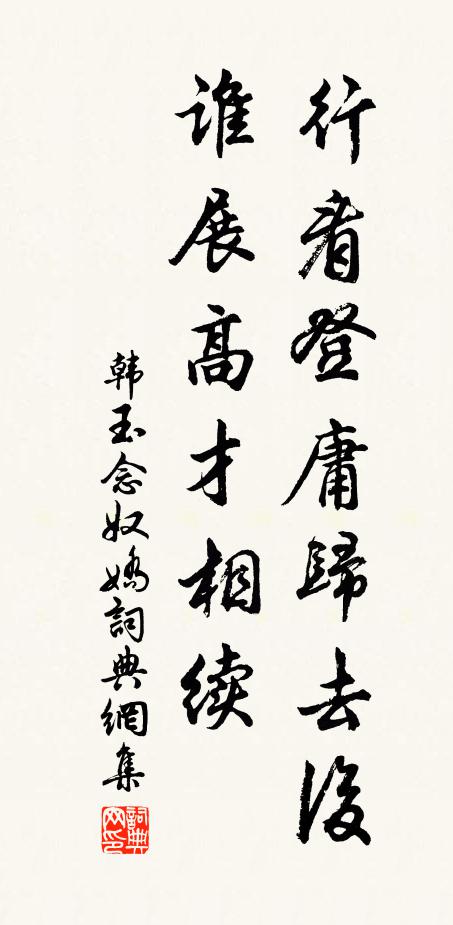 行看登庸歸去後
誰展高才相續
韩玉念奴嬌詞典網集
詞典网印